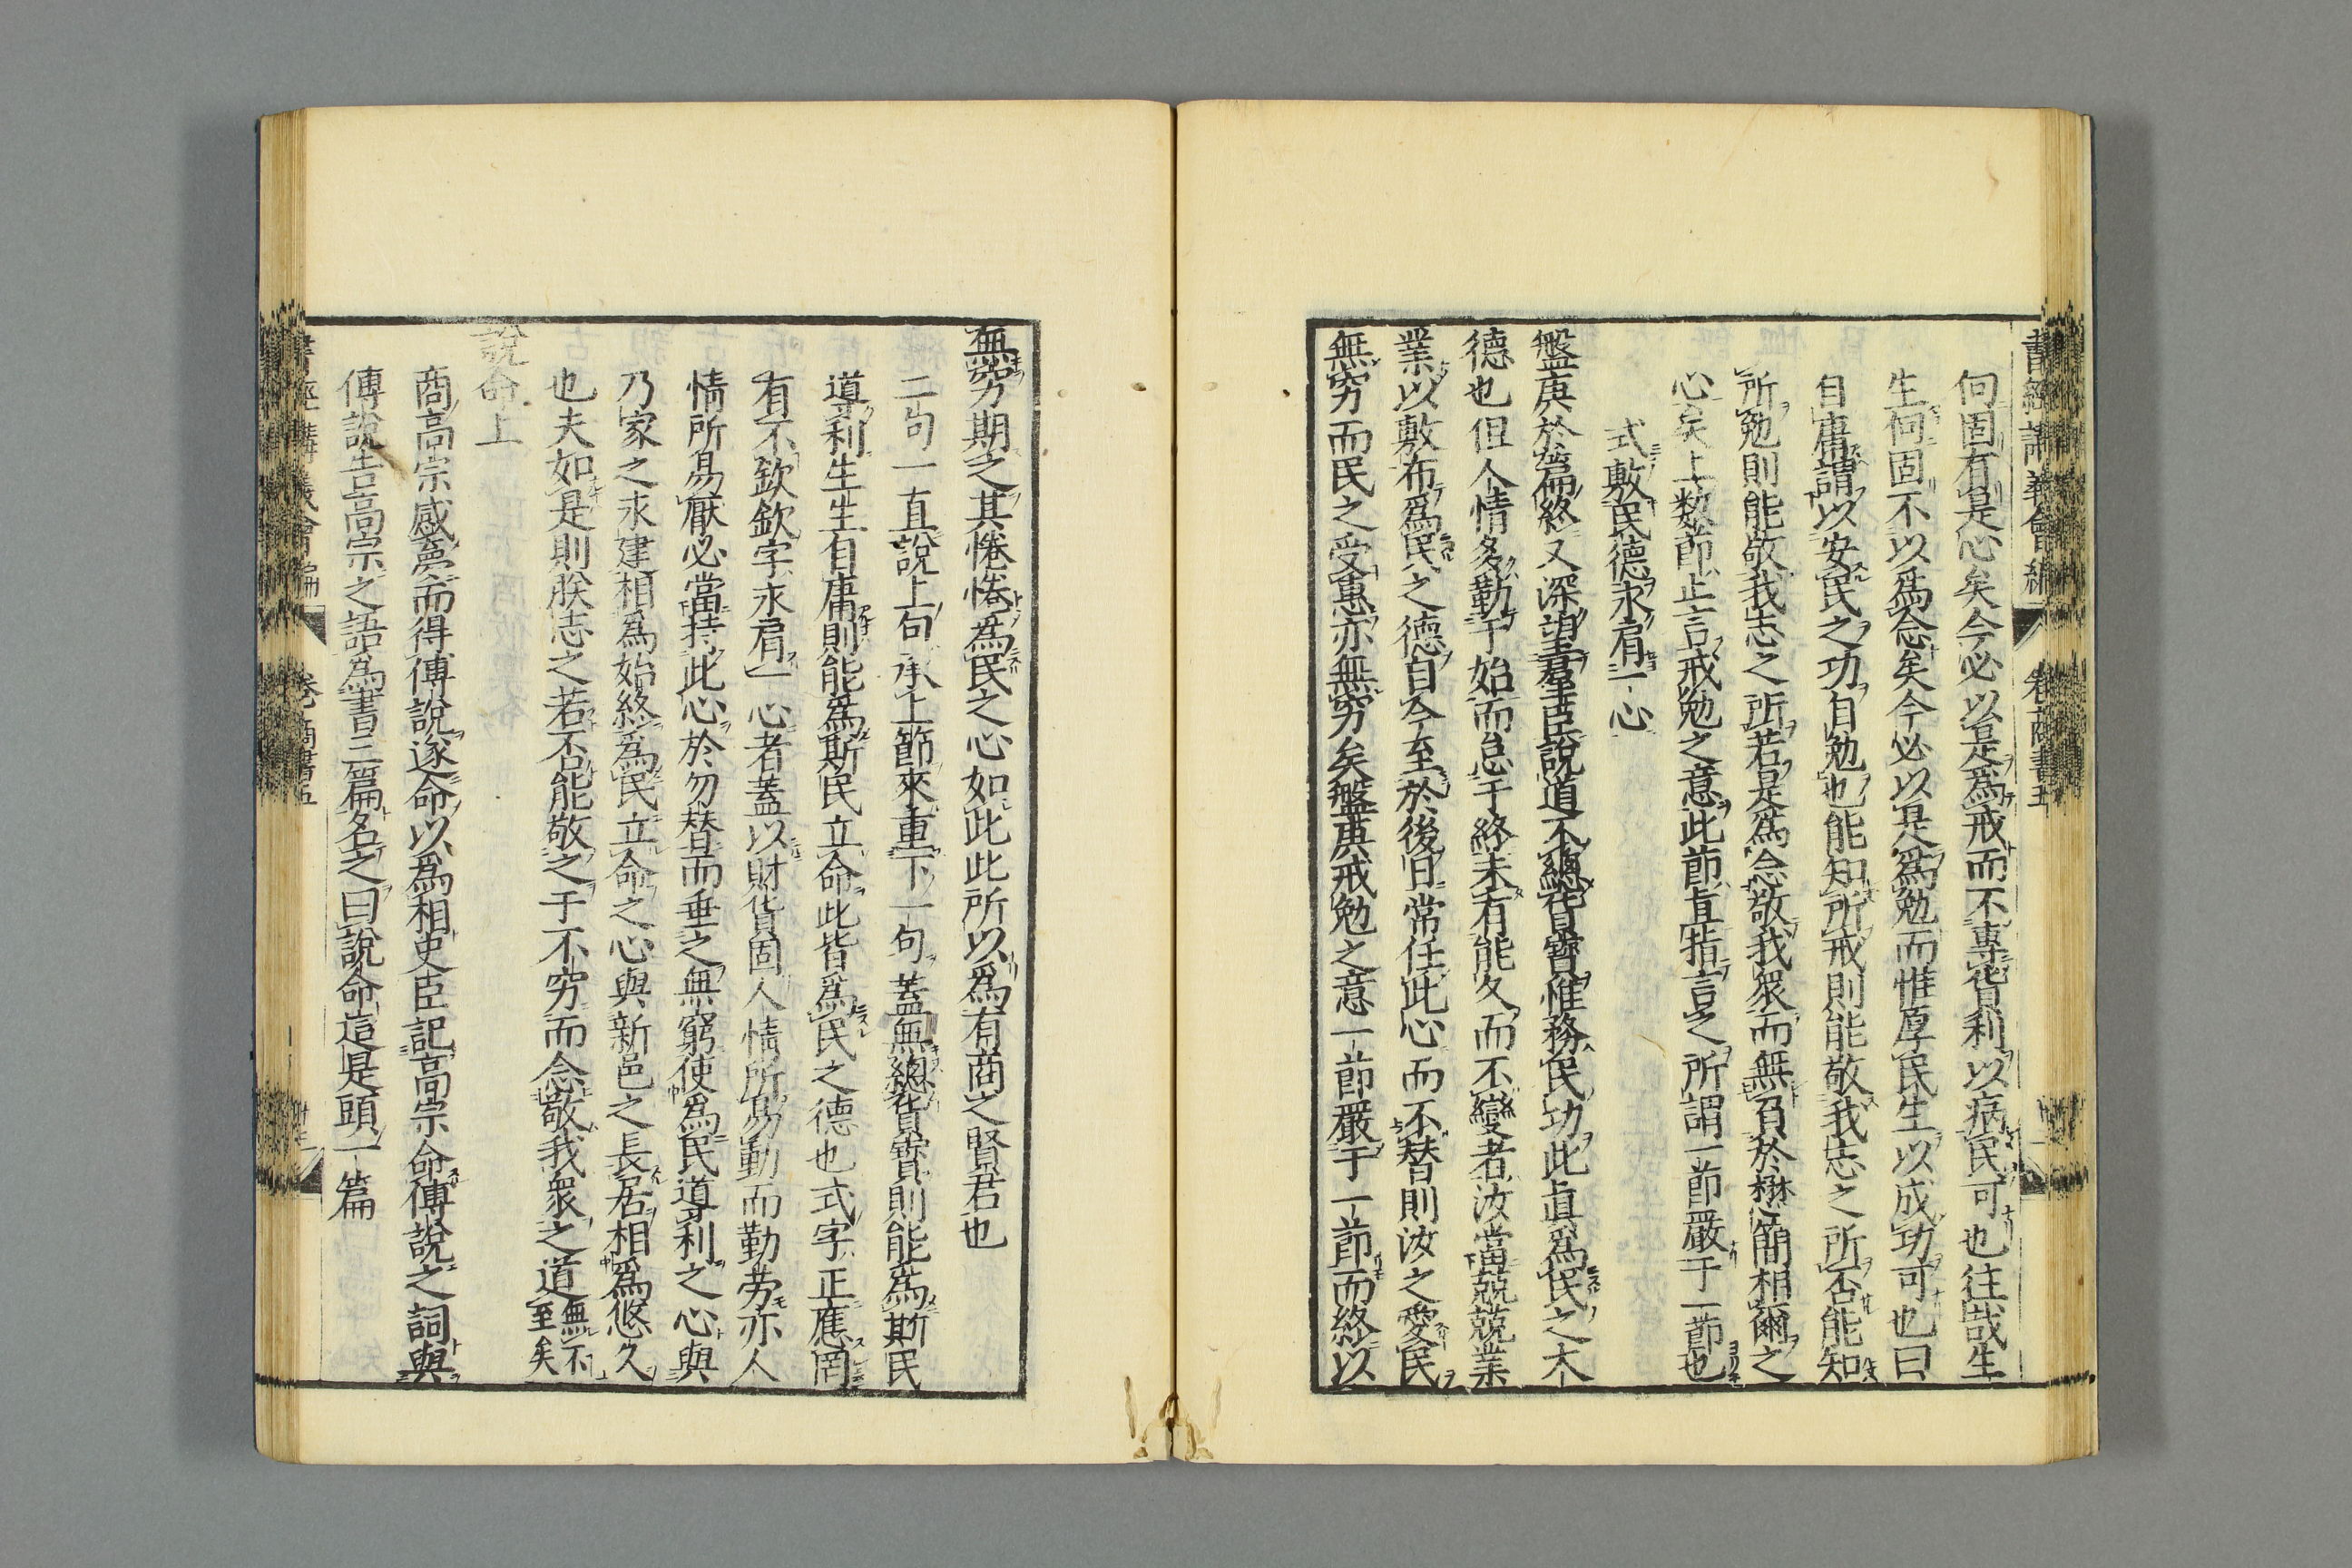 書經講義會編 卷 商書五
何固有是心矣今必以是爲戒而不專貨利以病民可也往哉生
生何固不以爲念矣今必以是爲勉而惟厚民生以成功可也曰
自庸謂以安民之功自勉也能知所戒則能敬我志之所否能知
所勉則能敬我志之所若是爲念敬我衆而無負於懋簡相爾之
心矣上数節止言戒勉之意此節直指言之所謂一節嚴于一節也
式敷民德永肩一心
盤庚於篇終又深望羣臣說道不總貨寶惟務民功此眞爲民之大
德也但人情多勤于始而怠于終未有能久而不變者汝當兢兢業
業以敷布爲民之德自今至於後日常任此心而不替則汝之愛民
無穷而民之受惠亦無穷矣盤庚戒勉之意一節嚴于一節而終以
無穷期之其惓惓為民之心如此此所以爲有商之賢君也
二句一直說上句承上節來重下一句蓋無總貨寳則能爲斯民
導利生生自庸則能爲斯民立命此皆爲民之德也式字正應罔
有不欽欽字永肩一心者蓋以財貨固人情所易動而勤劳亦人
情所易厭必當持此心於勿替而垂之無窮使爲民導利之心與
乃家之永建相爲始終爲民立命之心與新邑之長居相爲悠久
也夫如是則朕志之若否能敬之于不穷而念敬我衆之道無不至矣
說命上
商高宗感夢而得傅說遂命以爲相史臣記高宗命傅說之詞與
傅說告高宗之語爲書三篇名之曰說命這是頭一篇
書經講義會編 卷 商書五